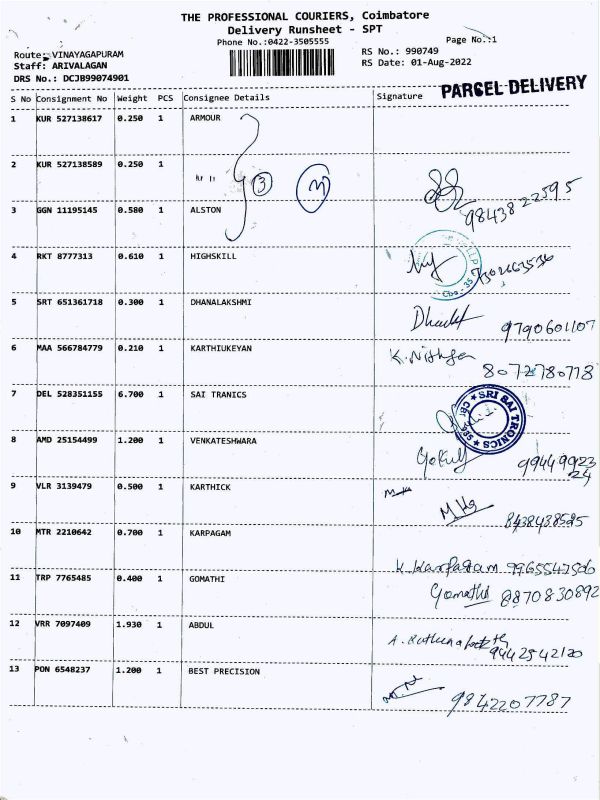 THE PROFESSIONAL COURIERS, Coimbatore
Delivery Runsheet - SPT
Phone No.:0422-3505555
Page No.:1
Route: VINAYAGAPURAM
RS No.: 990749
Staff: ARIVALAGAN
RS Date: 01-Aug-2022
DRS No.: DCJB99074901
PARCEL DELIVERY
S No Consignment No Weight PCS Consignee Details Signature
1 KUR 527138617 0.250 1 ARMOUR
2 KUR 527138589 0.250 1 3
9843822595
3 GGN 11195145 0.580 1 ALSTON
4 RKT 8777313 0.610 1 HIGHSKILL
5 SRT 651361718 0.300 1 DHANALAKSHMI
9790601107
6 MAA 566784779 0.210 1 KARTHIUKEYAN
8072780718
7 DEL 528351155 6.700 1 SAI TRANICS
SRI SAI TRONICS
8 AMD 25154499 1.200 1 VENKATESHWARA
Gokul 9944999324
9 VLR 3139479 0.500 1 KARTHICK
8438438525
10 MTR 2210642 0.700 1 KARPAGAM
K. Karpagam 9965547506
11 TRP 7765485 0.400 1 GOMATHI
Gomathi 8870830892
12 VRR 7097409 1.930 1 ABDUL
9442542120
13 PON 6548237 1.200 1 BEST PRECISION
9842207787